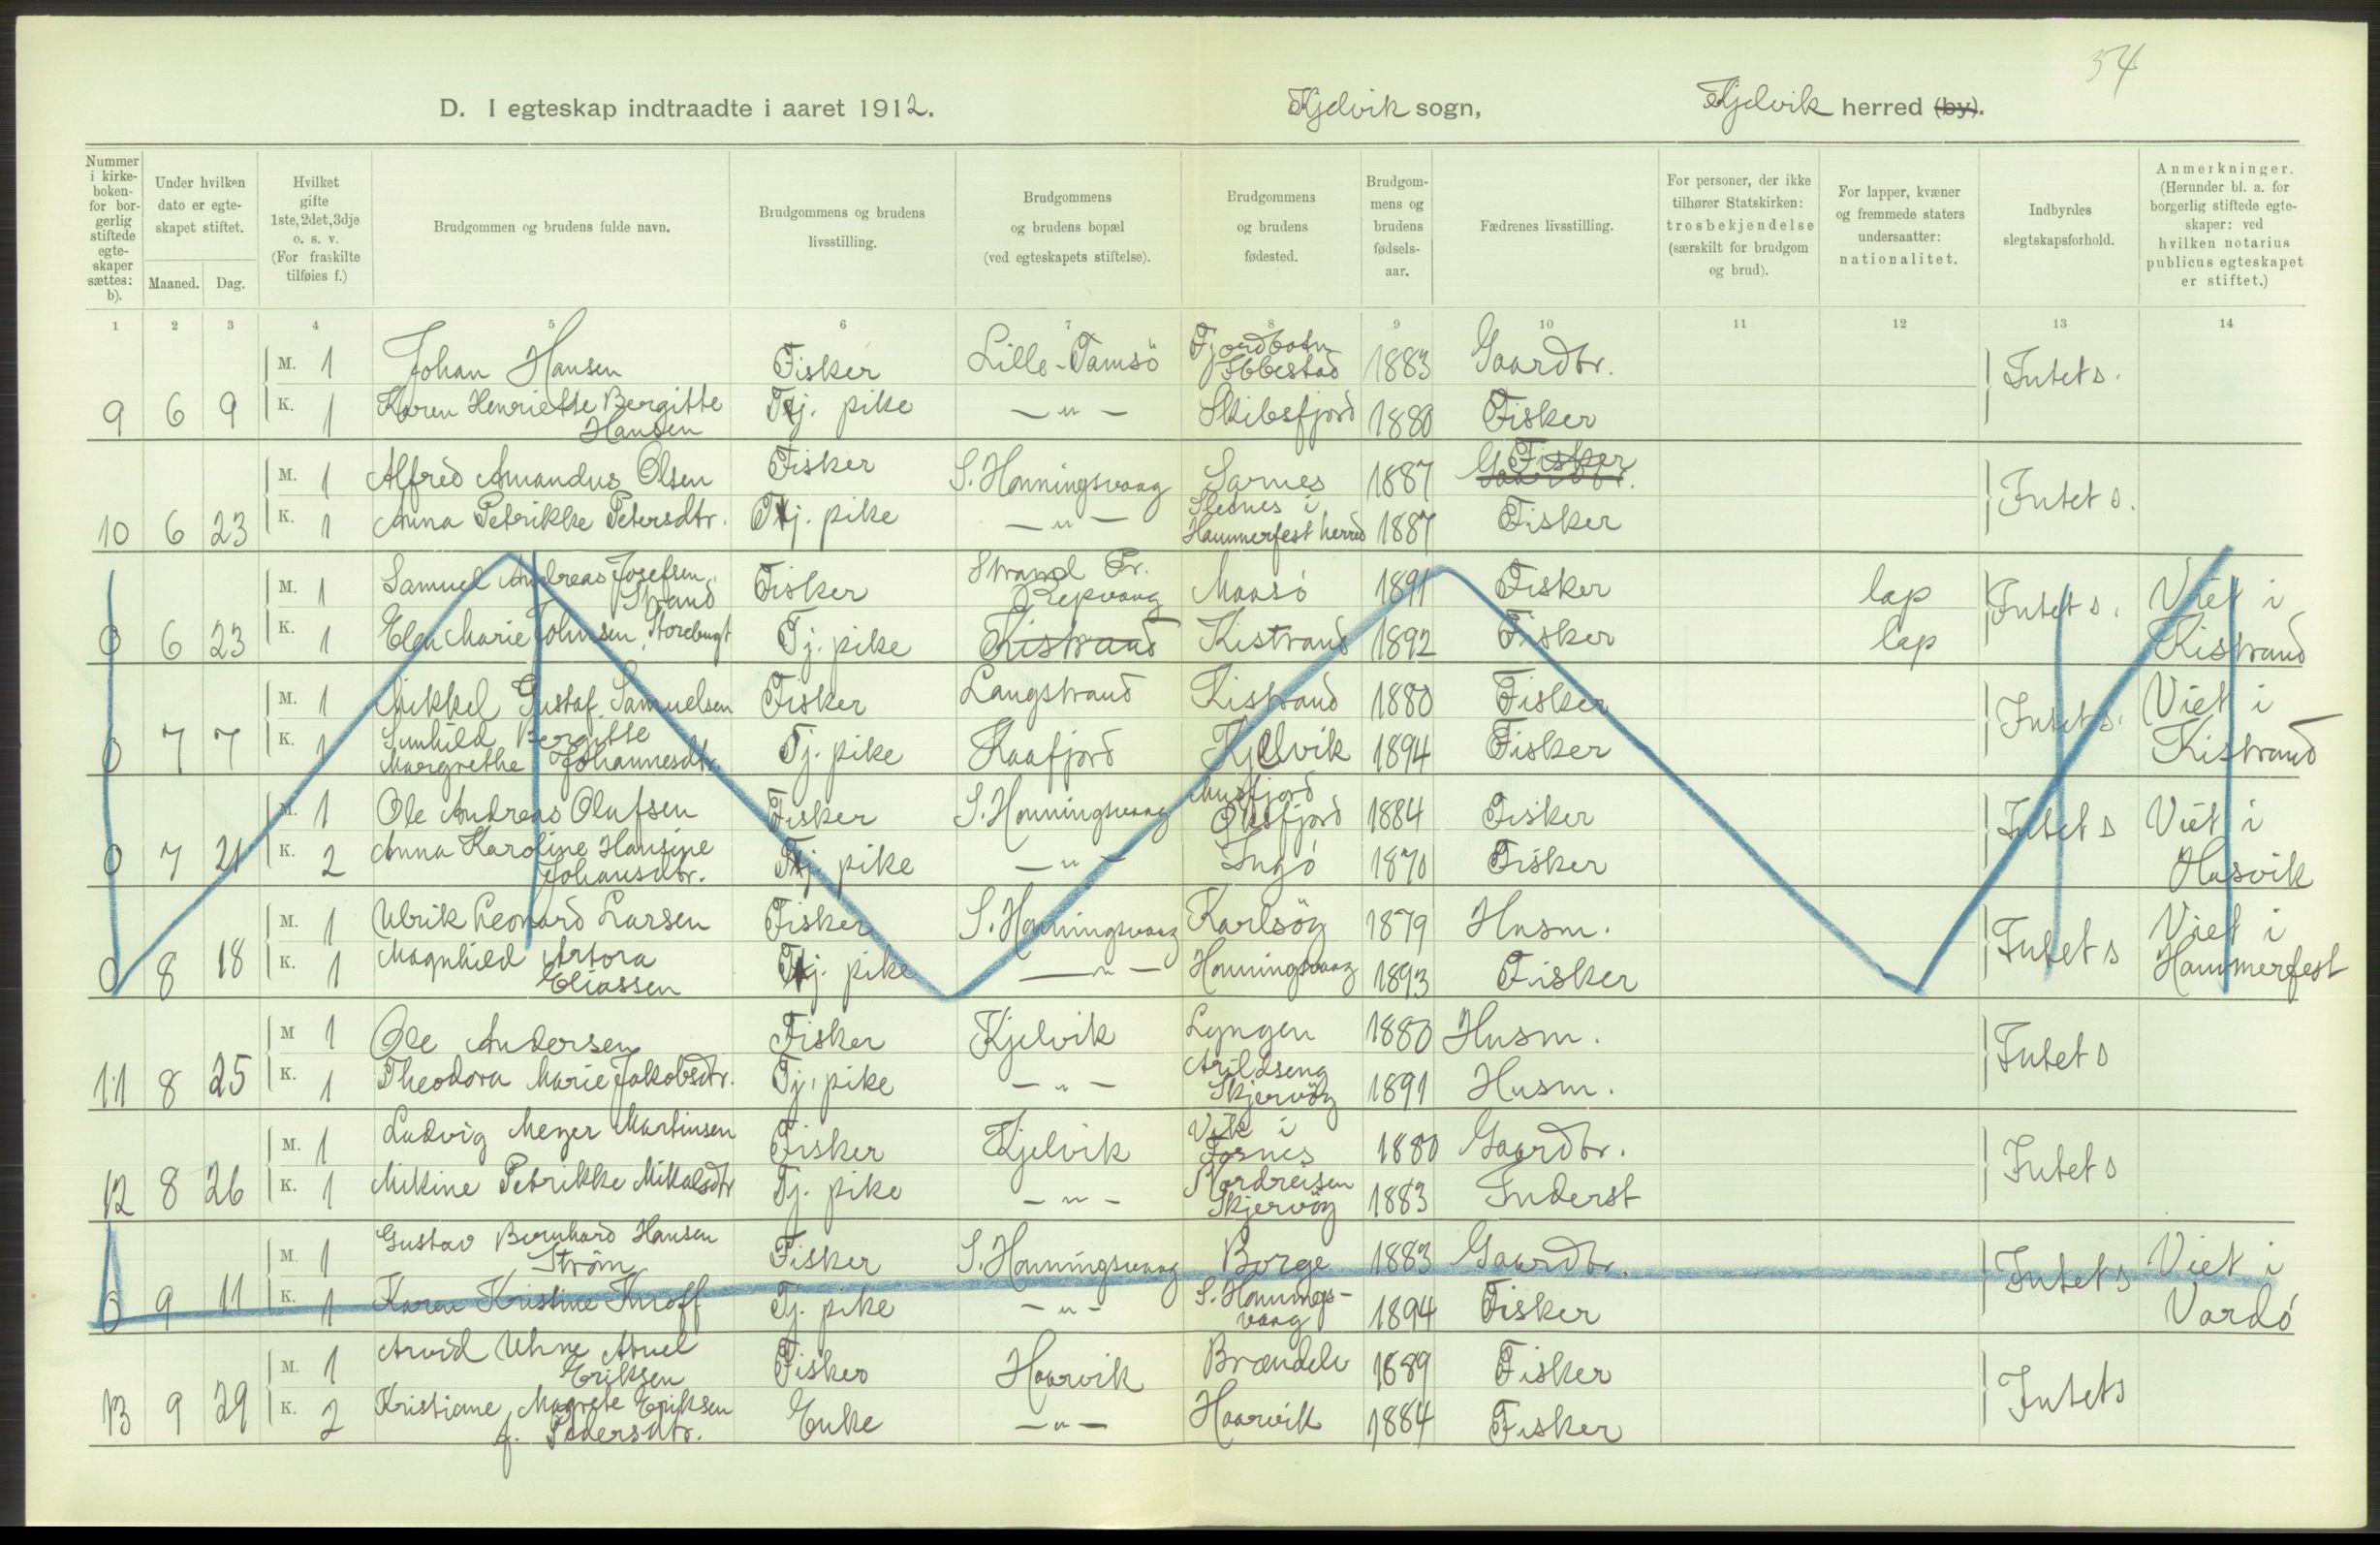 34
D. I egteskap indtraadte i aaret 1912. Kjelvik sogn, Kjelvik herred (by).
Nummer i kirkeboken- for borgerlig stiftede egteskaper sættes: b).
Under hvilken dato er egteskapet stiftet.
Maaned. Dag.
Hvilket gifte 1ste, 2det, 3dje o. s. v. (For fraskilte tilføies f.)
Brudgommen og brudens fulde navn.
Brudgommens og brudens livsstilling.
Brudgommens og brudens bopæl (ved egteskapets stiftelse).
Brudgommens og brudens fødested.
Brudgommens og brudens fødselsaar.
Fædrenes livsstilling.
For personer, der ikke tilhører Statskirken: trosbekjendelse (særskilt for brudgom og brud).
For lapper, kvæner og fremmede staters undersaatter: nationalitet.
Indbyrdes slegtskapsforhold.
Anmerkninger. (Herunder bl. a. for borgerlig stiftede egteskaper: ved hvilken notarius publicus egteskapet er stiftet.)
1 2 3 4 5 6 7 8 9 10 11 12 13 14
M. 1 Johan Hansen Fisker Lille-Tamsö Fjordbotn Ibbestad 1883 Gaardbr. Intets.
9 6 9 K. 1 Karen Henriette Bergitte Hansen Tj. pike — " — Skibsfjord 1880 Fisker
M. 1 Alfred Amandus Olsen Fisker S. Honningsvaag Sarnes 1887 Fisker Gaardbr. Intets.
10 6 23 K. 1 Anna Petrikke Petersdtr. Tj. pike — " — Slednes i Hammerfest herred 1887 Fisker
M. 1 Samuel Andreas Josefsen Strand Fisker Strand Pr. Repvaag Maasö 1891 Fisker lap Intets. Viet i
0 6 23 K. 1 Elen Marie Johnsen, Storebugt Tj. pike Kistrand Kistrand 1892 Fisker lap Kistrand
M. 1 Mikkel Gustaf Samuelsen Fisker Langstrand Kistrand 1880 Fisker Intets. Viet i
0 7 7 K. 1 Sunhild Bergitte Margrethe Johannesdtr. Tj. pike Kaafjord Kjelvik 1894 Fisker Kistrand
M. 1 Ole Andreas Olufsen Fisker S. Honningsvaag Øksfjord 1884 Fisker Intets Viet i
0 7 21 K. 2 Anna Karoline Hansine Johansdtr. Tj pike — " — Ingö 1870 Fisker Hasvik
M. 1 Ulrik Leonard Larsen Fisker S. Honningsvaag Karlsöy 1879 Husm. Intets Viet i
0 8 18 K. 1 Magnhild Artora Eliassen Tj. pike — " — Honningsvaag 1893 Fisker Hammerfest
M 1 Ole Andersen Fisker Kjelvik Lyngen 1880 Husm. Intets
11 8 25 K. 1 Theodora Marie Jakobsdtr. Tj. pike — " — Arildseng Skjervöy 1891 Husm.
M. 1 Ludvig Meyer Martinsen Fisker Kjelvik Vik i Fosnes 1880 Gaardbr. Intets
12 8 26 K. 1 Mikine Petrikke Mikalsdtr Tj. pike — " — Nordreisen Skjervöy 1883 Inderst
M. 1 Gustav Bernhard Hansen Ström Fisker S. Honningsvaag Borge 1883 Gaardbr. Intets Viet i
0 9 11 K. 1 Karen Kristine Knoff Tj. pike — " — S. Honningsvaag 1894 Fisker Vardö
M. 1 Arvid Uhne Eriksen Fisker Haarvik Brændelv 1889 Fisker Intets
13 9 29 K. 2 Kristiane Magrete Eriksen f. Pedersdtr. Enke — " — Haarvik 1884 Fisker